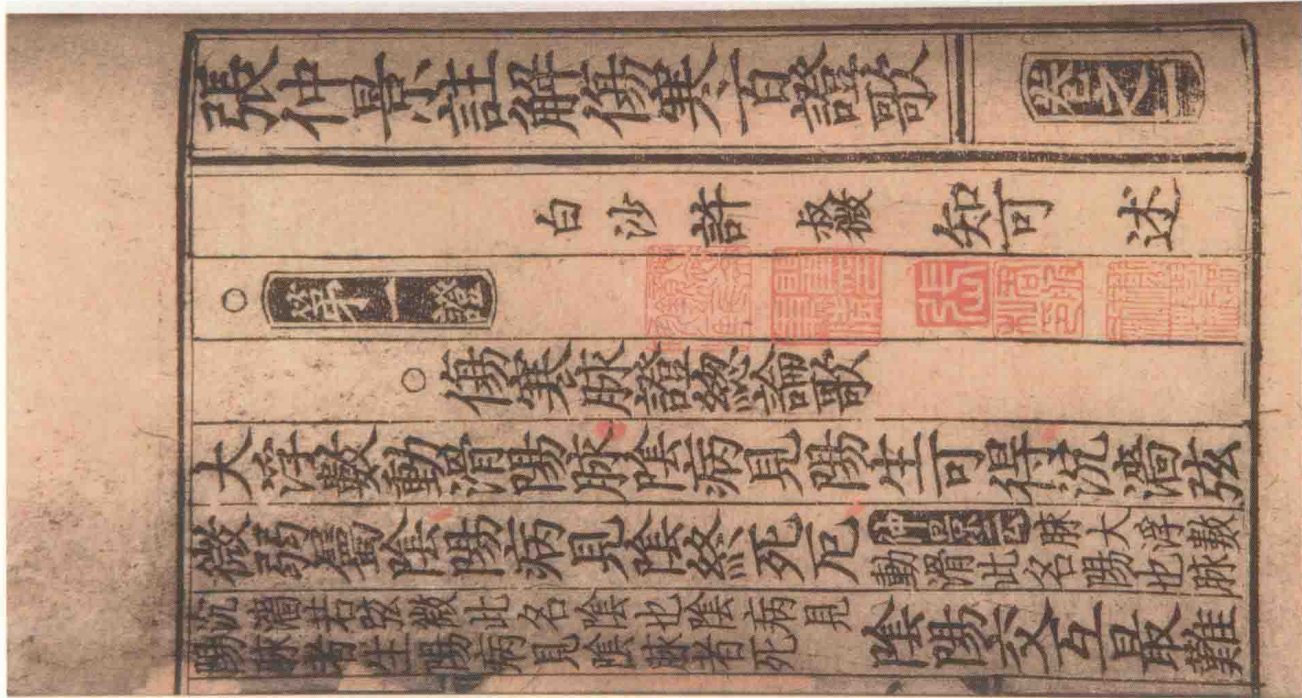 張仲景註解傷寒百證歌 卷之一
白沙許叔微知可述
○第一證
○傷寒脉證緫論歌
大浮數動滑陽脉陰病見陽生可得沉濇弦
微弱屬陰陽病見陰終死厄 仲景云脉大浮數
動滑此名陽也脉
沉濇若弦微此名陰也陰病見
陽脉者生陽病見陰脉者死
陰陽交互最難